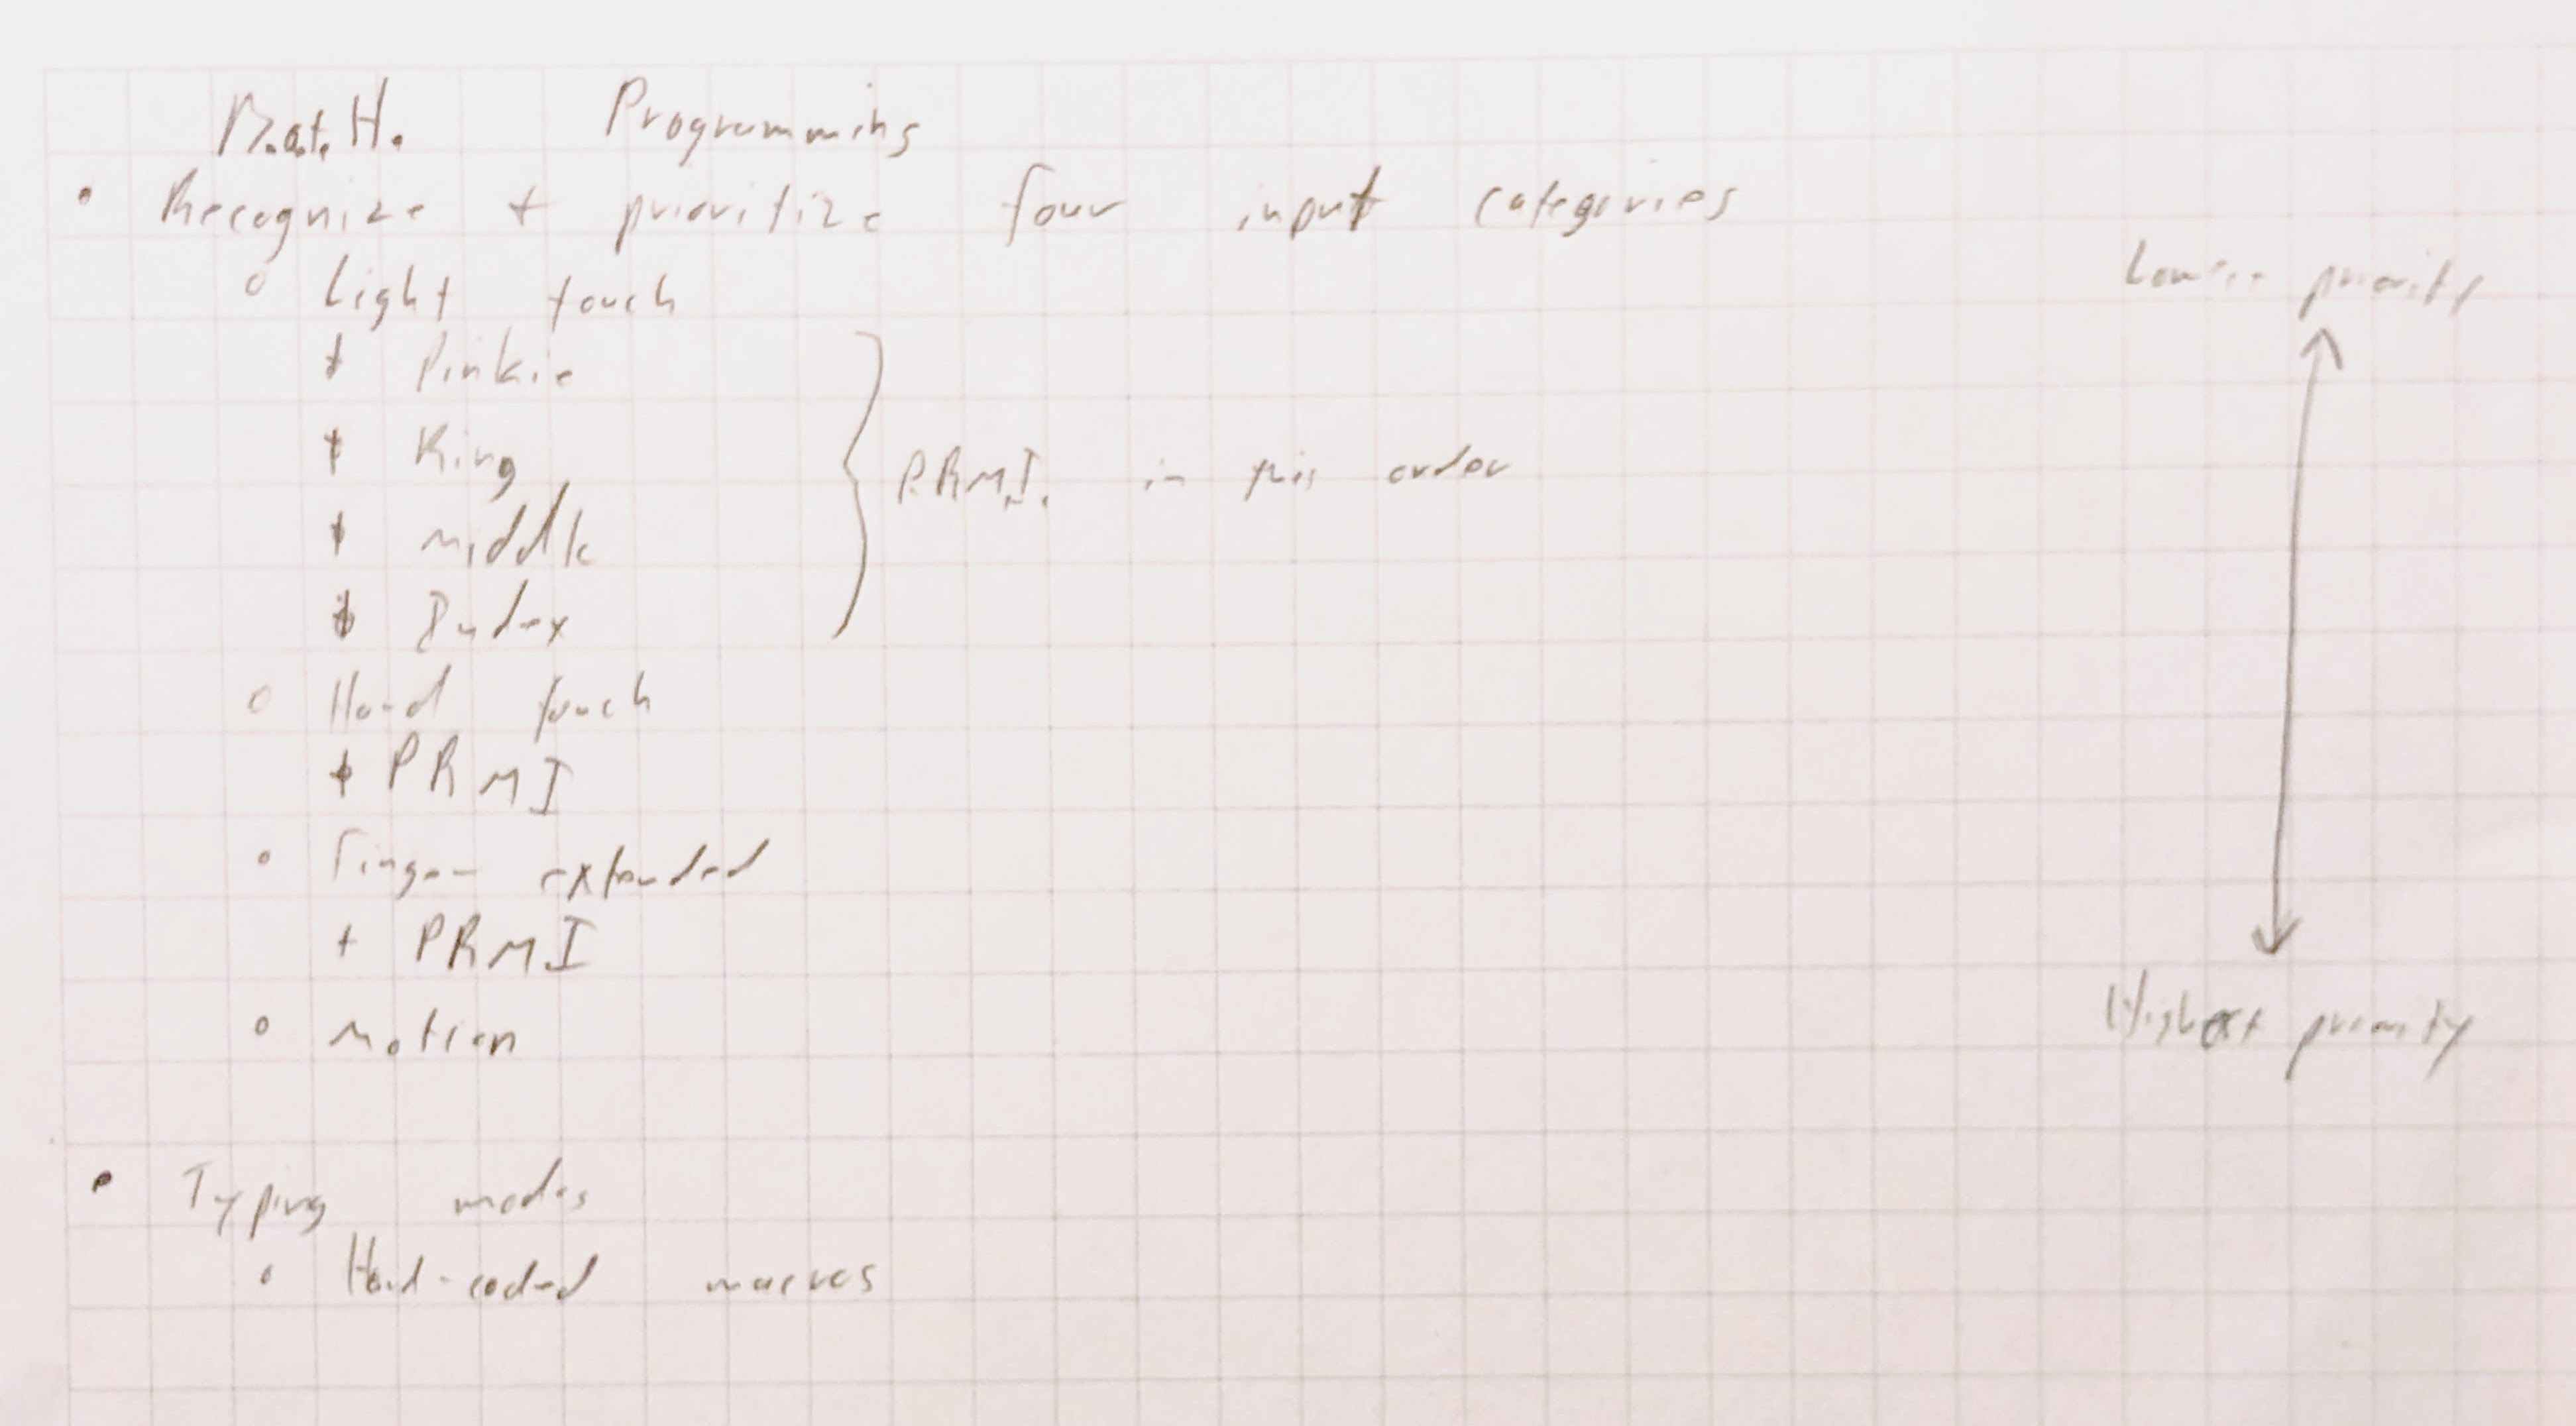 B.a.t.H. Programming
• Recognize + prioritize four input categories
Lowest priority
○ Light touch
+ Pinkie
+ Ring
P.R.M.I. in this order
+ Middle
+ Index
○ Hard touch
+ PRMI
○ Finger extended
+ PRMI
○ Motion
Highest priority
• Typing modes
○ Hard-coded macros